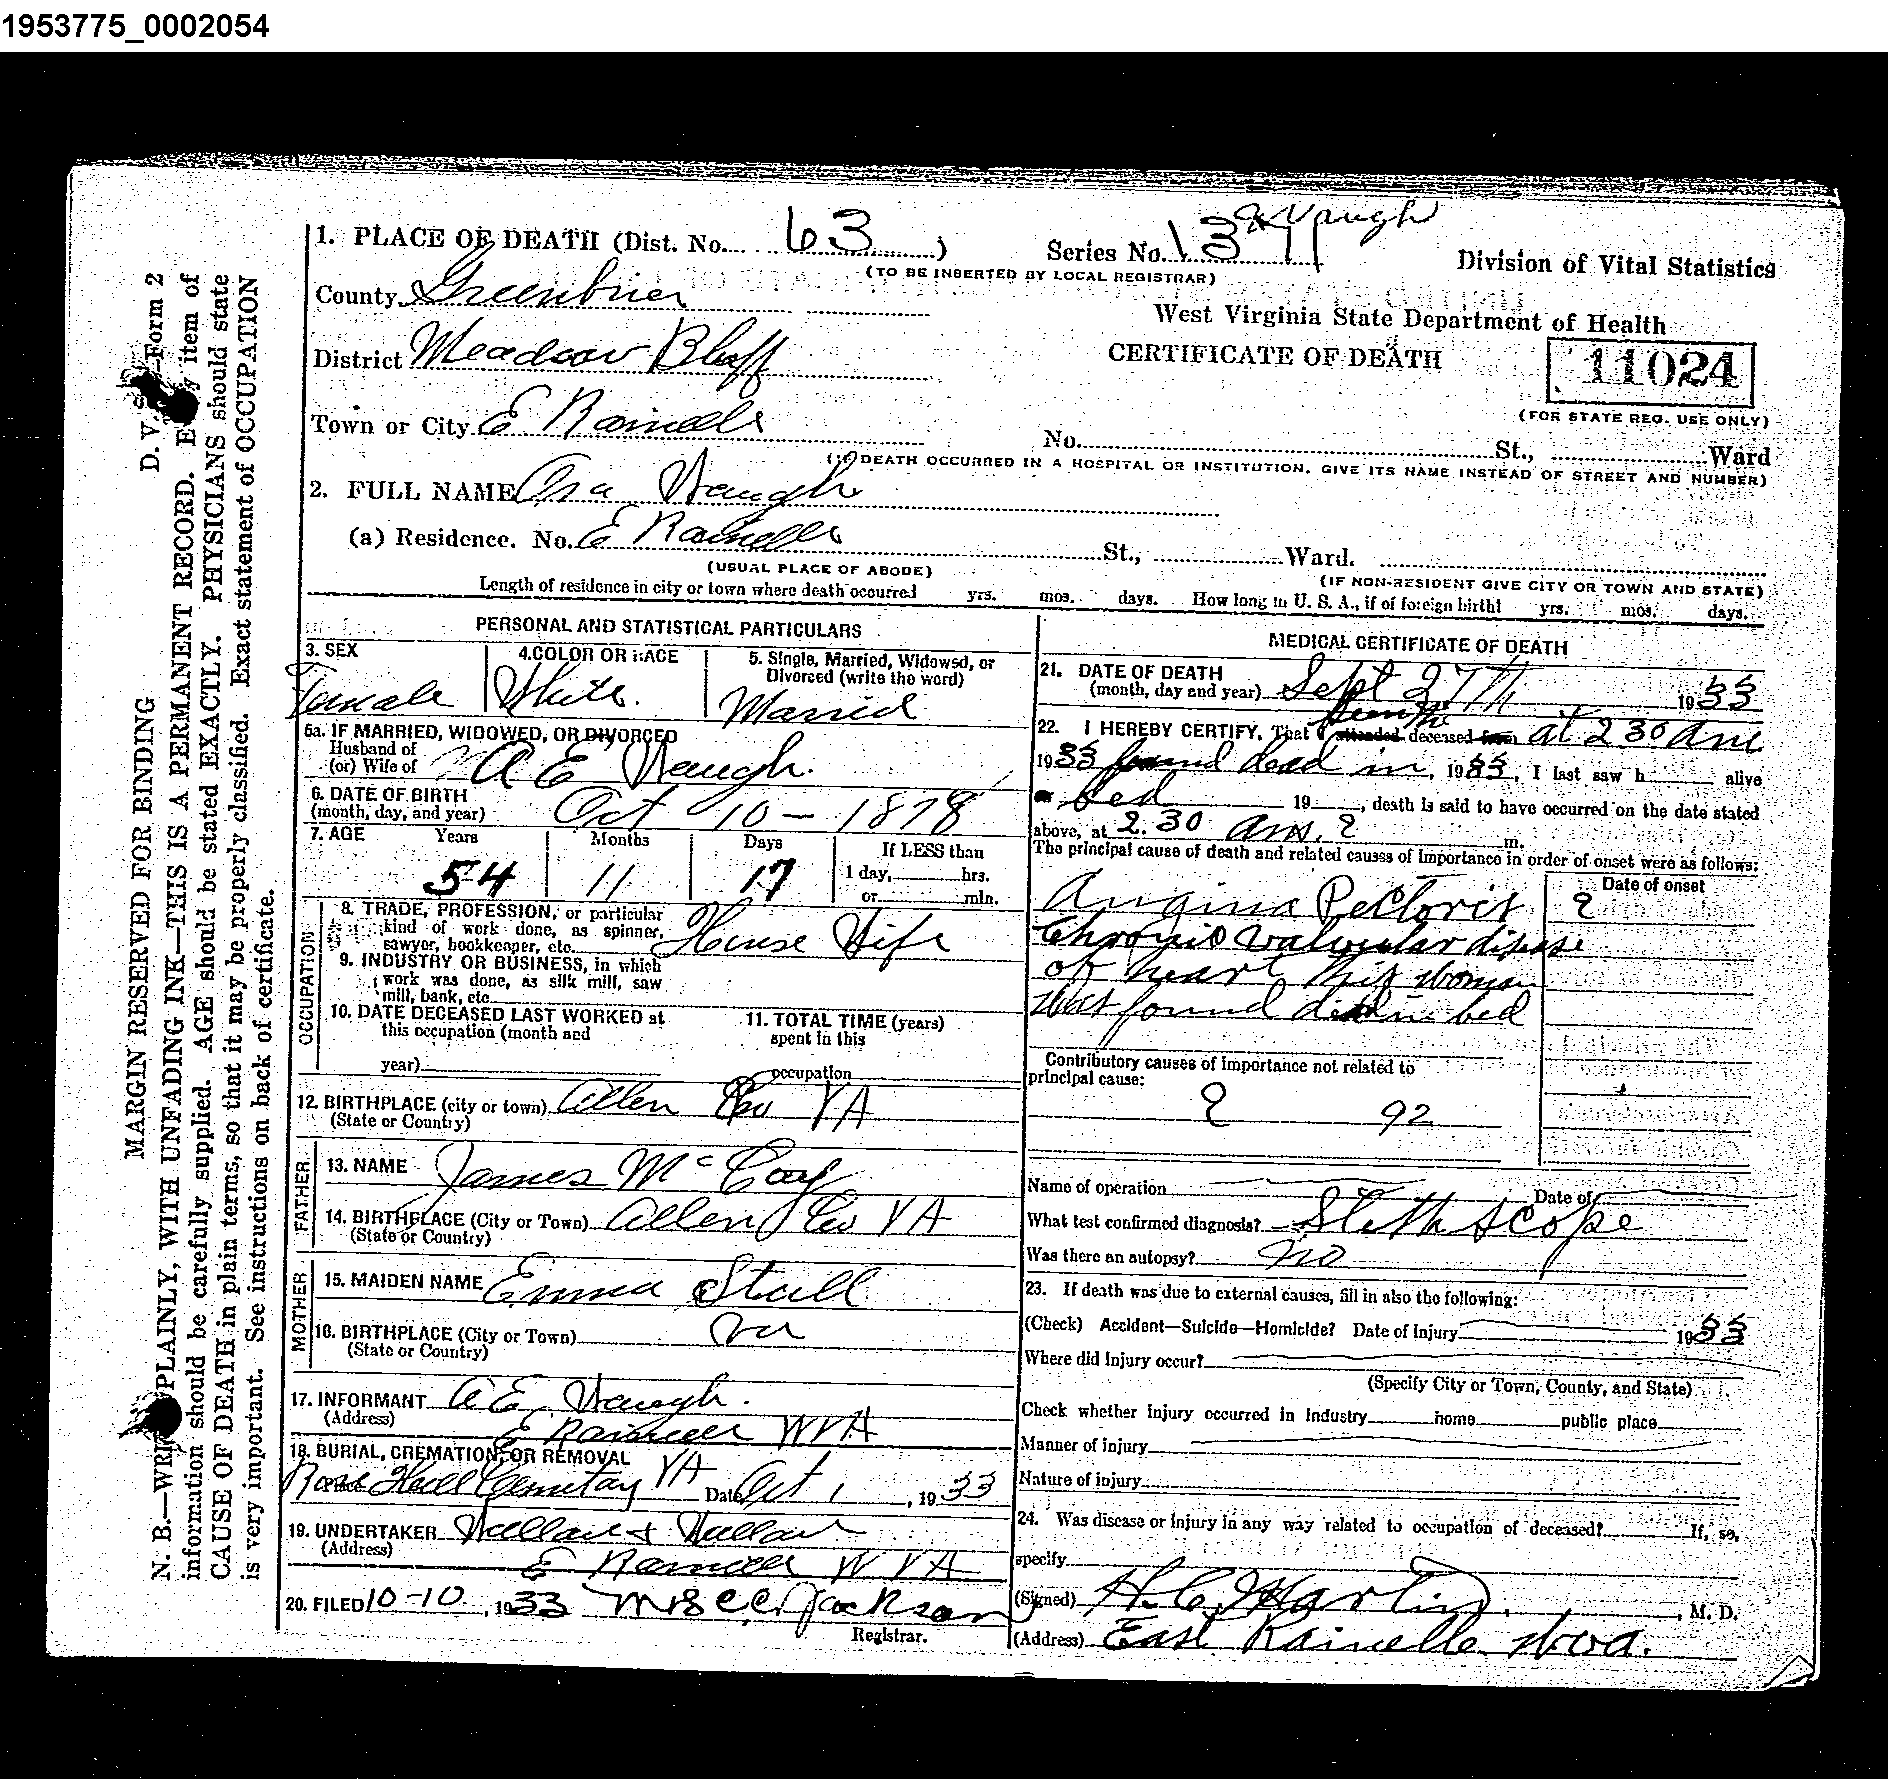 1953775_0002054
1. PLACE OF DEATH (Dist. No. 63 )
Series No. 13
Vaugh
(TO BE INSERTED BY LOCAL REGISTRAR)
Division of Vital Statistics
County Greenbrier
West Virginia State Department of Health
District Meadow Bluff
CERTIFICATE OF DEATH
11024
(FOR STATE REG. USE ONLY)
Town or City E Rainelle
No. St., Ward
(IF DEATH OCCURRED IN A HOSPITAL OR INSTITUTION, GIVE ITS NAME INSTEAD OF STREET AND NUMBER)
2. FULL NAME Ora Waugh
(a) Residence. No. E Rainelle St., Ward.
(USUAL PLACE OF ABODE)
(IF NON-RESIDENT GIVE CITY OR TOWN AND STATE)
Length of residence in city or town where death occurred yrs. mos. days. How long in U. S. A., if of foreign birth? yrs. mos. days.
PERSONAL AND STATISTICAL PARTICULARS
3. SEX
Female
4. COLOR OR RACE
White.
5. Single, Married, Widowed, or
Divorced (write the word)
Married
5a. IF MARRIED, WIDOWED, OR DIVORCED
Husband of
(or) Wife of A E Waugh.
6. DATE OF BIRTH
(month, day, and year) Oct 10 - 1878
7. AGE Years Months Days If LESS than
54 11 17 1 day, hrs.
or min.
OCCUPATION
8. TRADE, PROFESSION, or particular
kind of work done, as spinner,
sawyer, bookkeeper, etc. House Wife
9. INDUSTRY OR BUSINESS, in which
work was done, as silk mill, saw
mill, bank, etc.
10. DATE DECEASED LAST WORKED at
this occupation (month and
year)
11. TOTAL TIME (years)
spent in this
occupation
12. BIRTHPLACE (city or town) Allen Co VA
(State or Country)
FATHER
13. NAME James McCoy
14. BIRTHPLACE (City or Town) Allen Co VA
(State or Country)
MOTHER
15. MAIDEN NAME Emma Stull
16. BIRTHPLACE (City or Town) Va
(State or Country)
17. INFORMANT A E Waugh.
(Address) E Rainelle W VA
18. BURIAL, CREMATION, OR REMOVAL
Rose Hill Cemetary VA Date Oct 1, 1933
19. UNDERTAKER Wallace & Wallace
(Address) E Rainelle W VA
20. FILED 10-10, 1933 Mrs C C Jackson
Registrar.
MEDICAL CERTIFICATE OF DEATH
21. DATE OF DEATH
(month, day and year) Sept 27Th 1933
22. I HEREBY CERTIFY, That I attended deceased from at 2 30 am
1933 found dead in, 1933, I last saw h alive
bed 19 , death is said to have occurred on the date stated
above, at 2.30 am. ? m.
The principal cause of death and related causes of importance in order of onset were as follows:
Date of onset
Angina Pectoris ?
Chronic valvular disease
of heart this woman
was found dead in bed
Contributory causes of importance not related to
principal cause:
? 92
Name of operation Date of
What test confirmed diagnosis? Stethscope
Was there an autopsy? no
23. If death was due to external causes, fill in also the following:
(Check) Accident—Suicide—Homicide? Date of Injury 1933
Where did injury occur?
(Specify City or Town, County, and State)
Check whether injury occurred in Industry home public place
Manner of injury
Nature of injury
24. Was disease or injury in any way related to occupation of deceased? If, so,
specify
(Signed) H. C. Martin, M. D.
(Address) East Rainelle W Va.
MARGIN RESERVED FOR BINDING
D. V. Form 2
N. B.—WRITE PLAINLY, WITH UNFADING INK—THIS IS A PERMANENT RECORD. Every item of
information should be carefully supplied. AGE should be stated EXACTLY. PHYSICIANS should state
CAUSE OF DEATH in plain terms, so that it may be properly classified. Exact statement of OCCUPATION
is very important. See instructions on back of certificate.